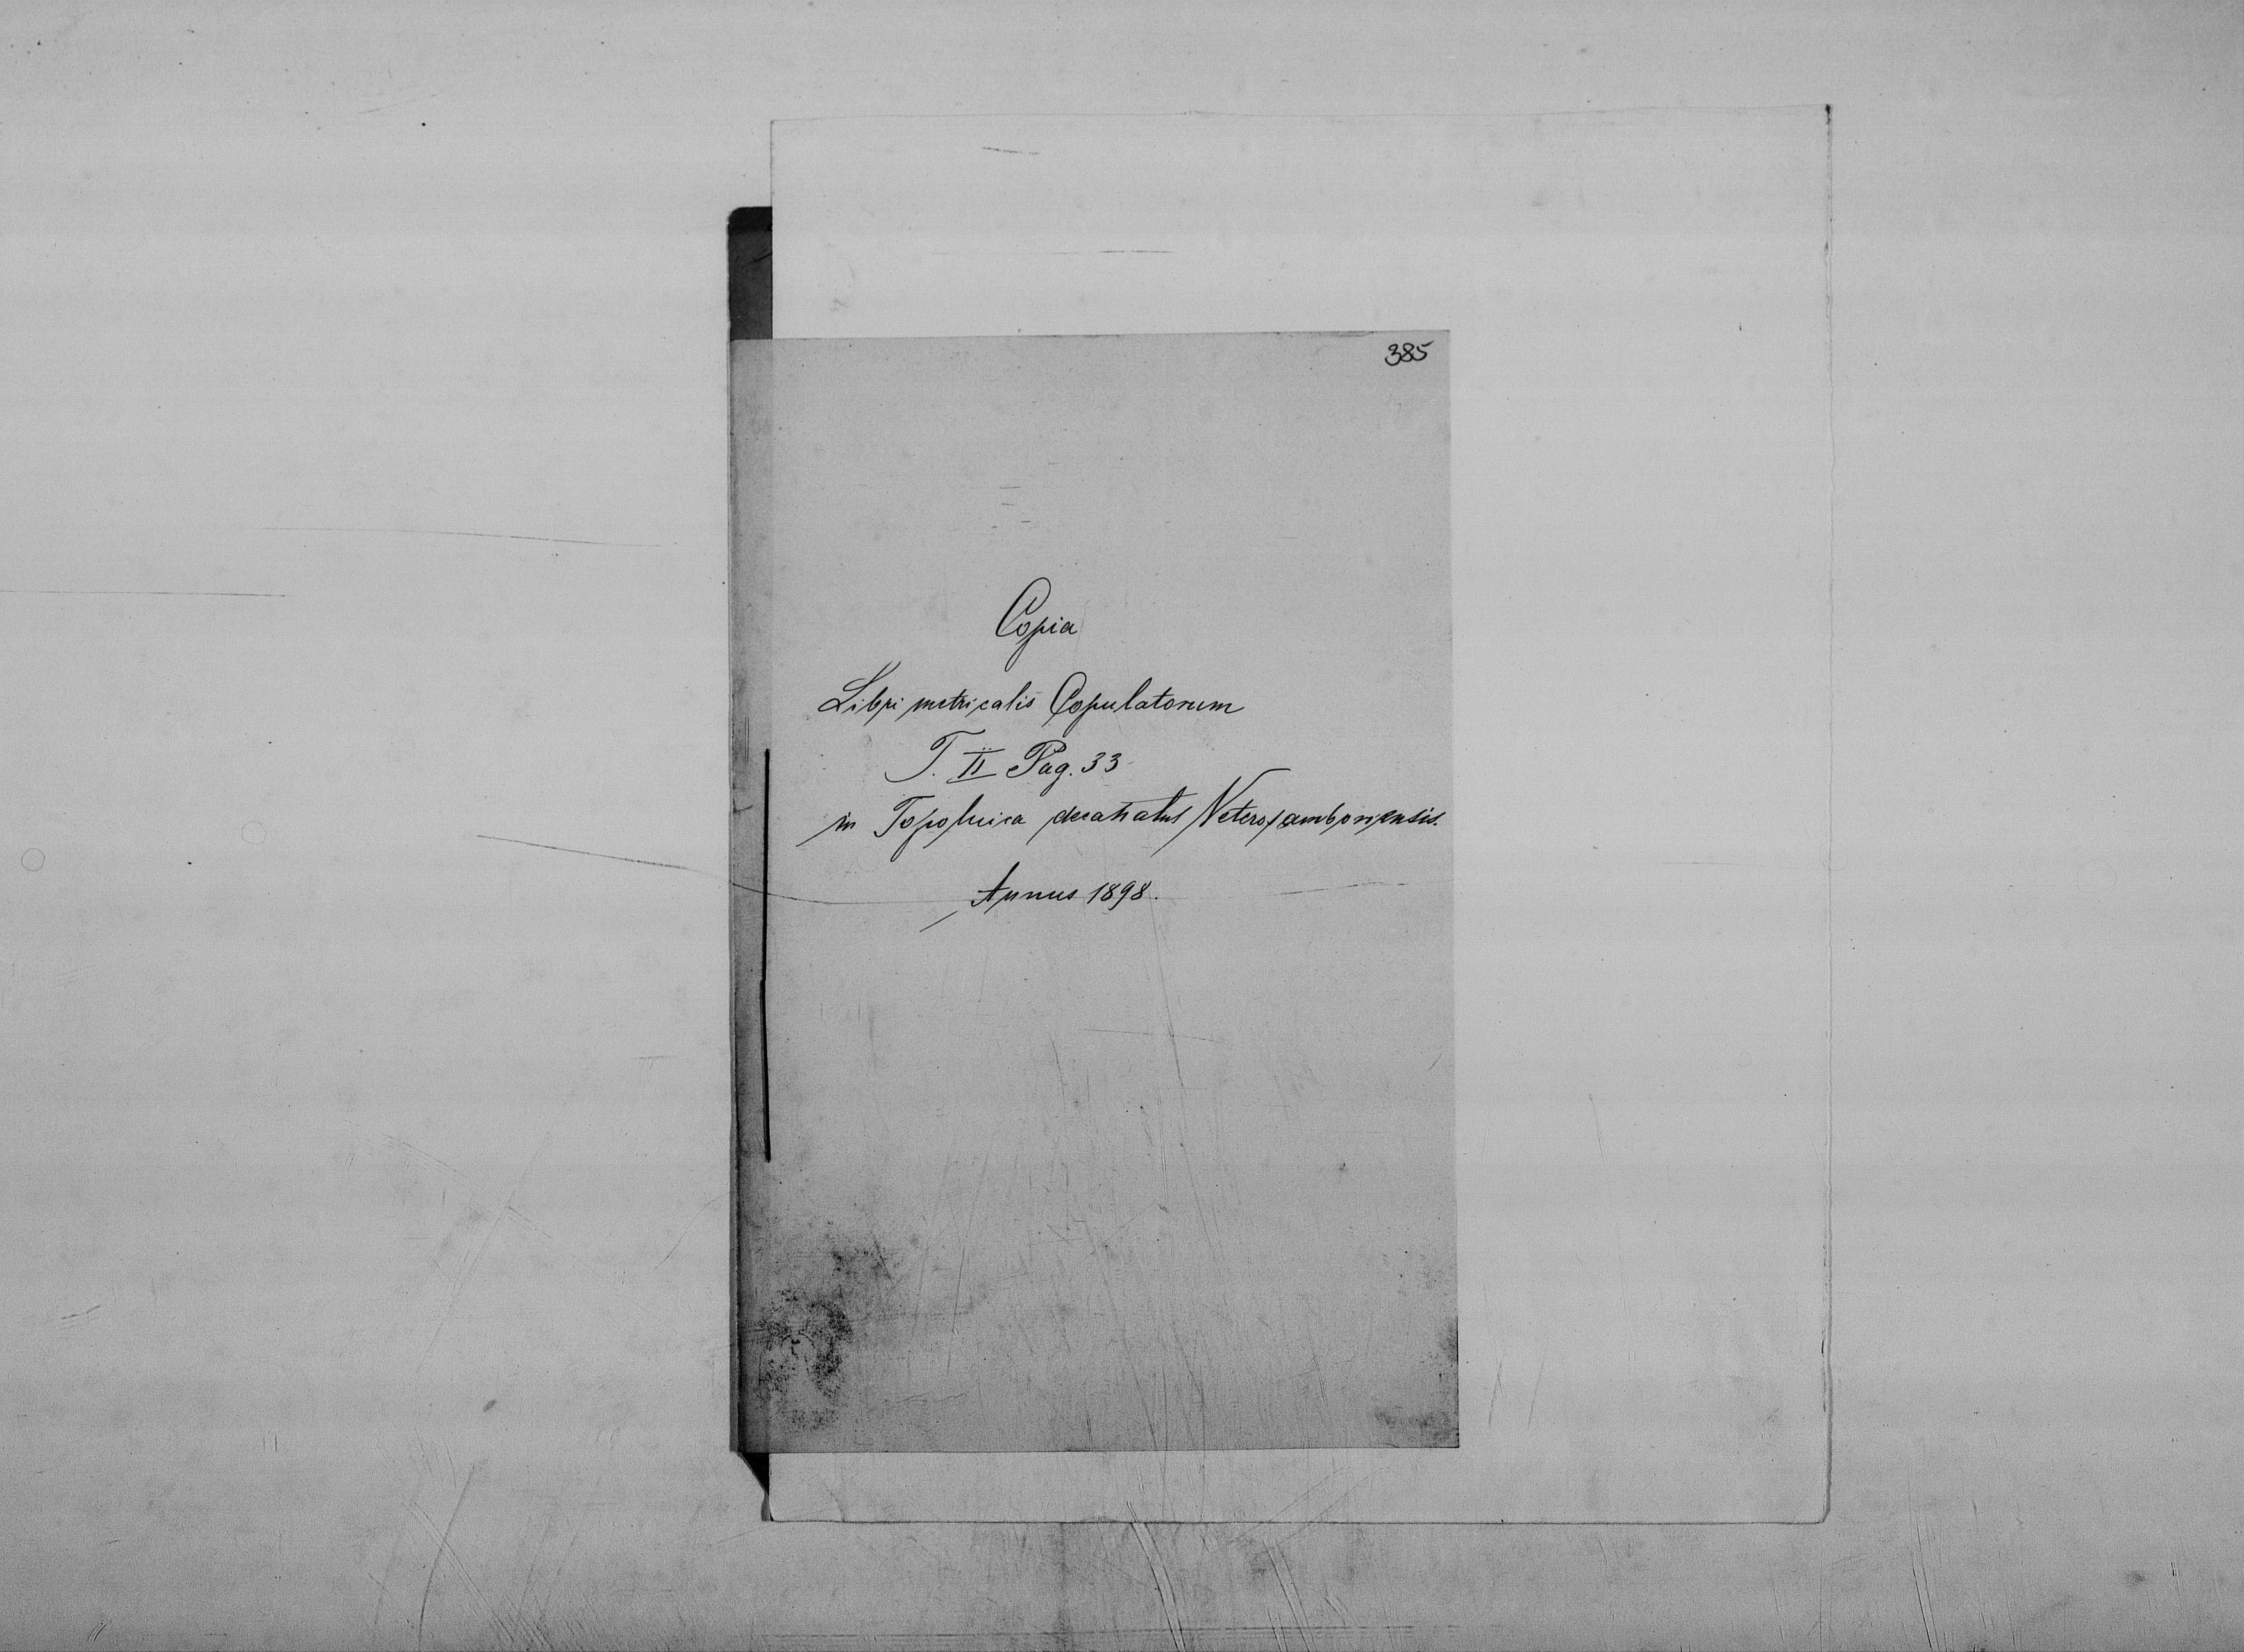 385
Copia
Libri metricalis Copulatorum
T. II Pag. 33
in Topolnica decanatus Veterosamboriensis.
Annus 1898.